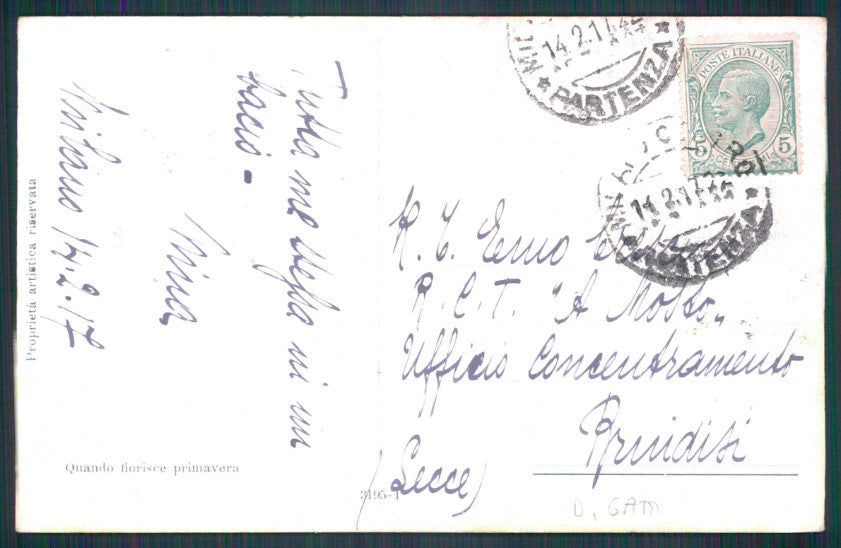 Milano 14.2.17
Tutta me stessa in un
bacio -
Nina
Proprietà artistica riservata
Quando fiorisce primavera
3195-1
POSTE ITALIANE
5 5
14.2.17
PARTENZA
14.2.17
PARTENZA
R. C. Erno
R. C. T. "A Mosto„
Ufficio Concentramento
Brindisi
(Lecce)
D. GAM